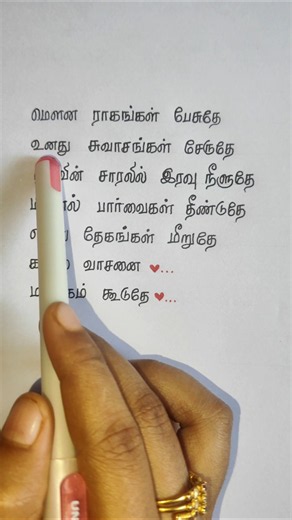 மௌன ராகங்கள் பேசுதே
உனது சுவாசங்கள் சேருதே
சாரலில் இரவு நீளுதே
பார்வைகள் தீண்டுதே
தேகங்கள் மீறுதே
வாசனை ❤...
கூடுதே ❤...
UN